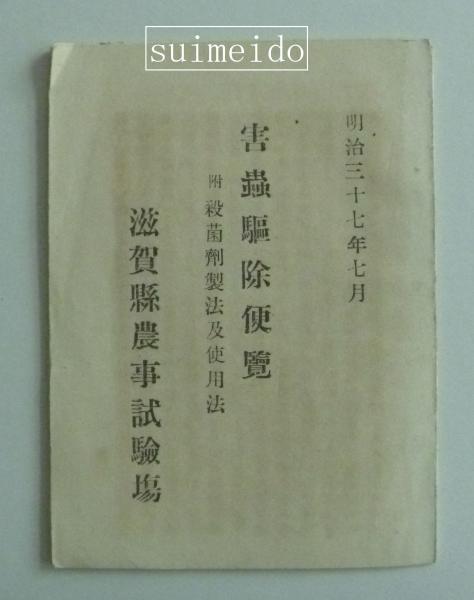 suimeido
明治三十七年七月
害蟲驅除便覽
附 殺菌劑製法及使用法
滋賀縣農事試驗塲